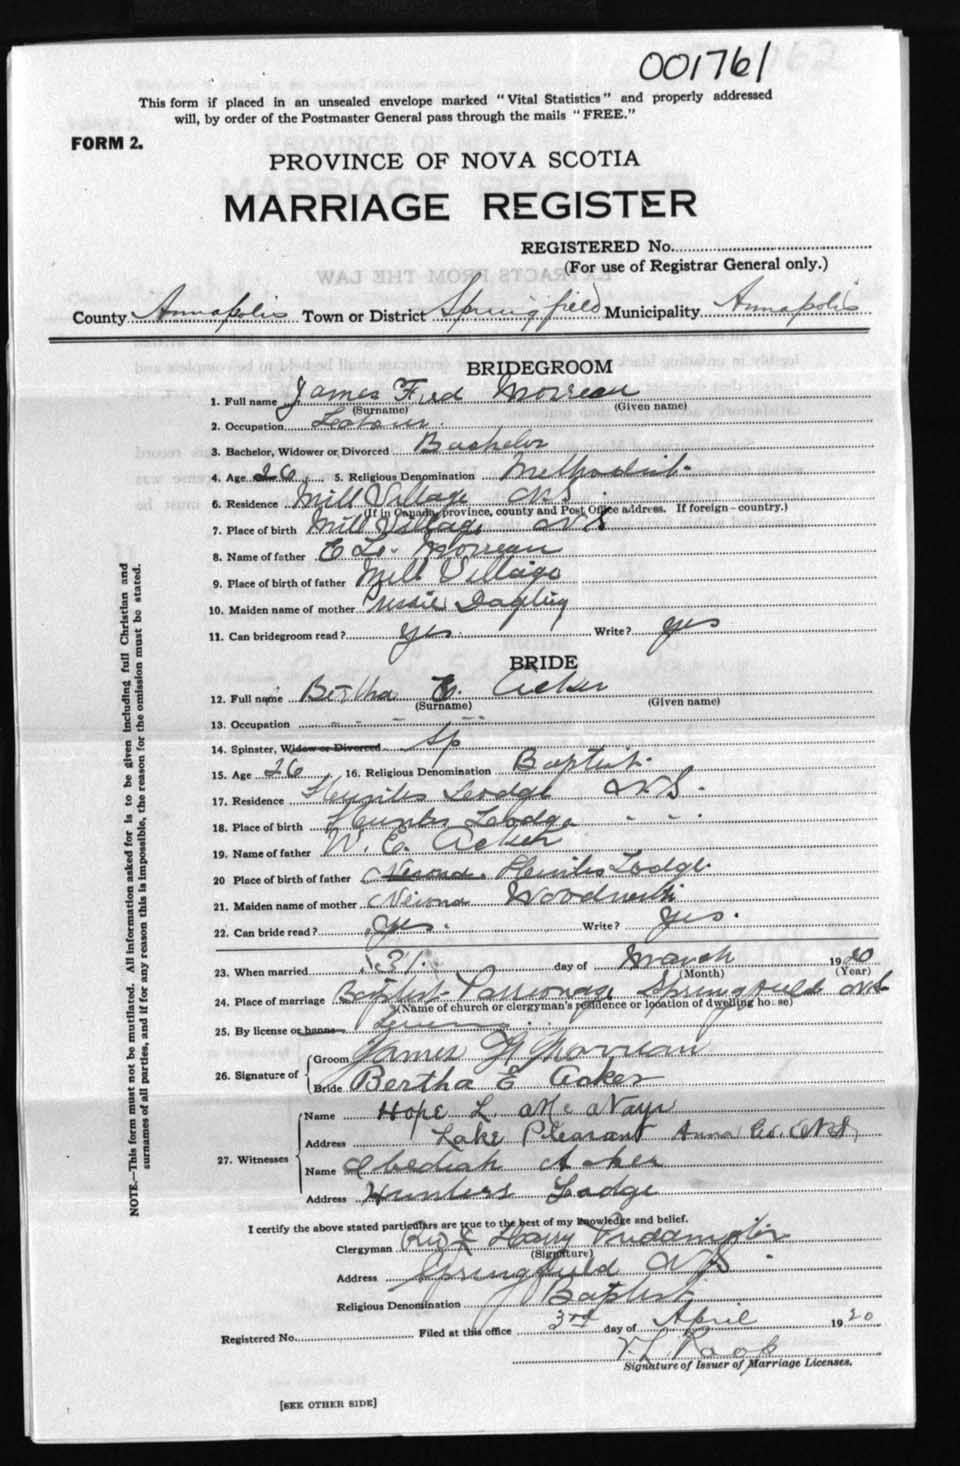 001761
This form if placed in an unsealed envelope marked "Vital Statistics" and properly addressed
will, by order of the Postmaster General pass through the mails "FREE."
FORM 2.
PROVINCE OF NOVA SCOTIA
MARRIAGE REGISTER
REGISTERED No.
(For use of Registrar General only.)
County Annapolis Town or District Springfield Municipality Annapolis
BRIDEGROOM
1. Full name James Fred
(Surname) (Given name)
2. Occupation
3. Bachelor, Widower or Divorced Bachelor
4. Age 26 5. Religious Denomination Methodist
6. Residence Mill Village N S
(If in Canada, province, county and Post Office address. If foreign - country.)
7. Place of birth Mill Village N S
8. Name of father
9. Place of birth of father Mill Village
10. Maiden name of mother
11. Can bridegroom read? yes Write? yes
BRIDE
12. Full name Bertha E. Acker
(Surname) (Given name)
13. Occupation
14. Spinster, Widow or Divorced Sp
15. Age 26 16. Religious Denomination Baptist
17. Residence Hunters Lodge N S.
18. Place of birth Hunters Lodge
19. Name of father W. E. Acker
20 Place of birth of father Hunters Lodge
21. Maiden name of mother
22. Can bride read? yes. Write? yes.
23. When married 31 day of March 1920
(Month) (Year)
24. Place of marriage Baptist Parsonage Springfield N S
(Name of church or clergyman's residence or location of dwelling house)
25. By license or banns
26. Signature of
Groom James F
Bride Bertha E Acker
27. Witnesses
Name Hope L. McNayr
Address Lake Pleasant Anna Co. N S
Name Obediah Acker
Address Hunters Lodge
I certify the above stated particulars are true to the best of my knowledge and belief.
Clergyman Rev Harry
(Signature)
Address Springfield N S
Religious Denomination Baptist
Registered No. Filed at this office 3rd day of April 1920
V. L. Roop
Signature of Issuer of Marriage Licenses.
[SEE OTHER SIDE]
NOTE.—This form must not be mutilated. All information asked for is to be given including full Christian and
surnames of all parties, and if for any reason this is impossible, the reason for the omission must be stated.